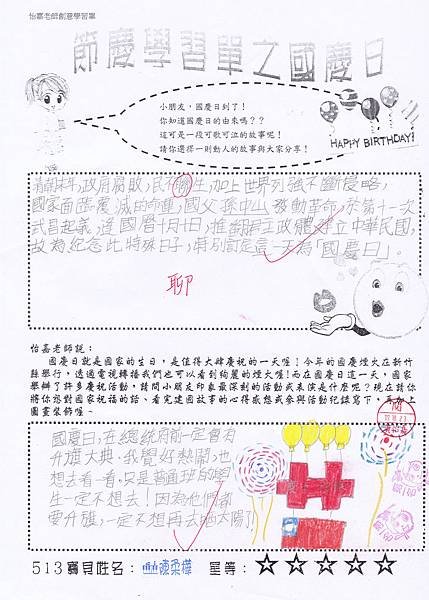 怡嘉老師創意學習單
節慶學習單之國慶日
小朋友，國慶日到了！
你知道國慶日的由來嗎？？
這可是一段可歌可泣的故事呢！
請你選擇一則動人的故事與大家分享！
HAPPY BIRTHDAY!
清朝末年，政府腐敗，民不聊生，加上世界列強不斷侵略，
國家面臨覆滅的命運，國父孫中山發動革命，於第十一次
武昌起義，選國曆十月十日，推翻專制政體，建立中華民國，
故為紀念此特殊日子，特別訂定這一天為「國慶日」。
聊
怡嘉老師說：
國慶日就是國家的生日，是值得大肆慶祝的一天喔！今年的國慶煙火在新竹
縣舉行，透過電視轉播我們也可以看到絢麗的煙火喔！而在國慶日這一天，國家
舉辦了許多慶祝活動，請問小朋友印象最深刻的活動或表演是什麼呢？現在請你
將你想對國家祝福的話、看完建國故事的心得感想或參與活動紀錄寫下，再加上
圖畫裝飾喔。
閱
國慶日，在總統府前一定會有
升旗大典，我覺得好熱鬧，也
想去看一看，只是普通班的學
生一定不想去！因為他們都
要升旗，一定不想再去曬太陽了
513寶貝姓名：陳柔樺 星等：☆☆☆☆☆